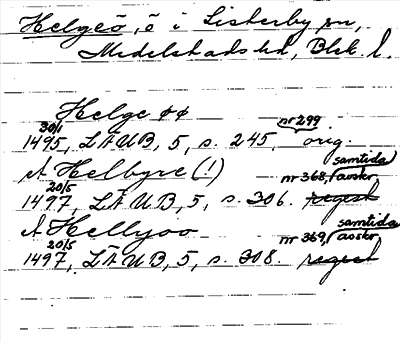 Helgeö, ö i Listerby sn,
Medelstads hd, Blek. l.
Helge öö
30/1 1495, LÄUB, 5, s. 245, nr 299 orig.
A Helbyre (!)
20/5 1497, LÄUB, 5, s. 306. nr 368, samtida avskr. regest
A Hellyoo
20/5 1497, LÄUB, 5, s. 308. nr 369, samtida avskr. regest